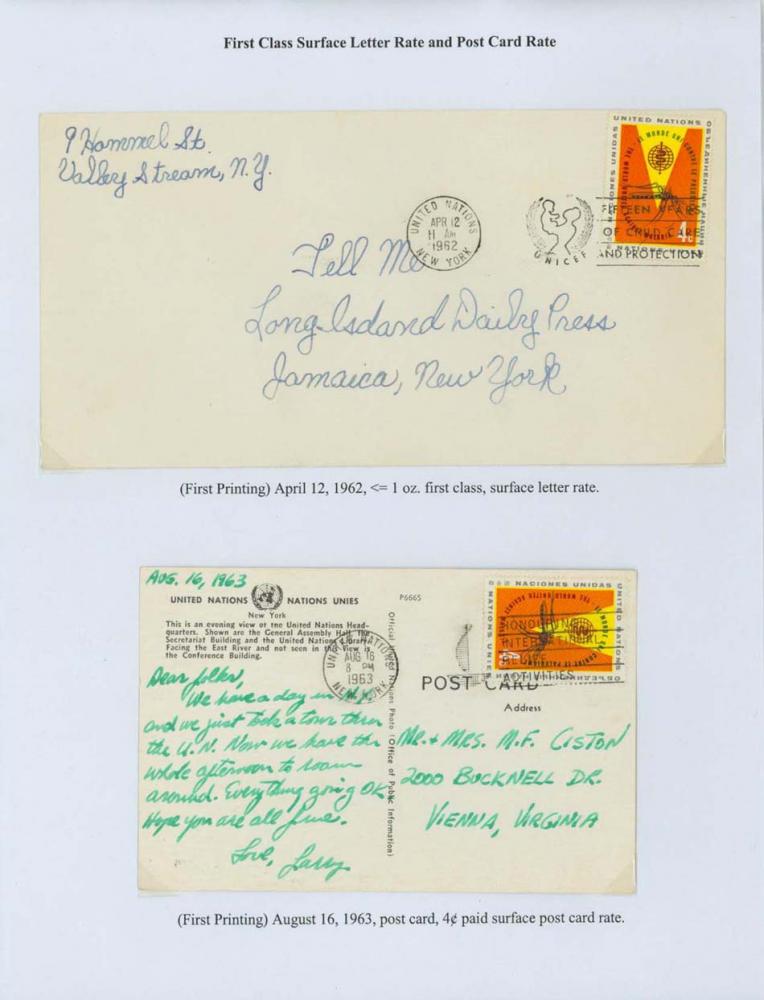 First Class Surface Letter Rate and Post Card Rate
9 Hammel St.
Valley Stream, N.Y.
UNITED NATIONS
NACIONES UNIDAS
LE MONDE UNI CONTRE LE PALUDISME
THE WORLD UNITED AGAINST MALARIA
4c
UNITED NATIONS
APR 12
11 AM
1962
NEW YORK
UNICEF
FIFTEEN YEARS
OF CHILD CARE
AND PROTECTION
Tell Me
Long Island Daily Press
Jamaica, New York
(First Printing) April 12, 1962, <= 1 oz. first class, surface letter rate.
AUG. 16, 1963
UNITED NATIONS NATIONS UNIES
New York
This is an evening view of the United Nations Head-
quarters. Shown are the General Assembly Hall, the
Secretariat Building and the United Nations Library.
Facing the East River and not seen in this view is
the Conference Building.
P6665
Official United Nations Photo (Office of Public Information)
NACIONES UNIDAS
UNITED NATIONS
NATIONS UNIES
UNITED NATIONS
AUG 16
8 PM
1963
NEW YORK
HONOURING
INTERNATIONAL
RELIEF
ACTIVITIES
POST CARD
Address
Dear folks,
We have a day in N.Y.
and we just took a tour thru
the U.N. Now we have the
whole afternoon to roam
around. Everything going OK
Hope you are all fine.
Love, Larry
MR. + MRS. M.F. CISTON
2000 BUCKNELL DR.
VIENNA, VIRGINIA
(First Printing) August 16, 1963, post card, 4¢ paid surface post card rate.